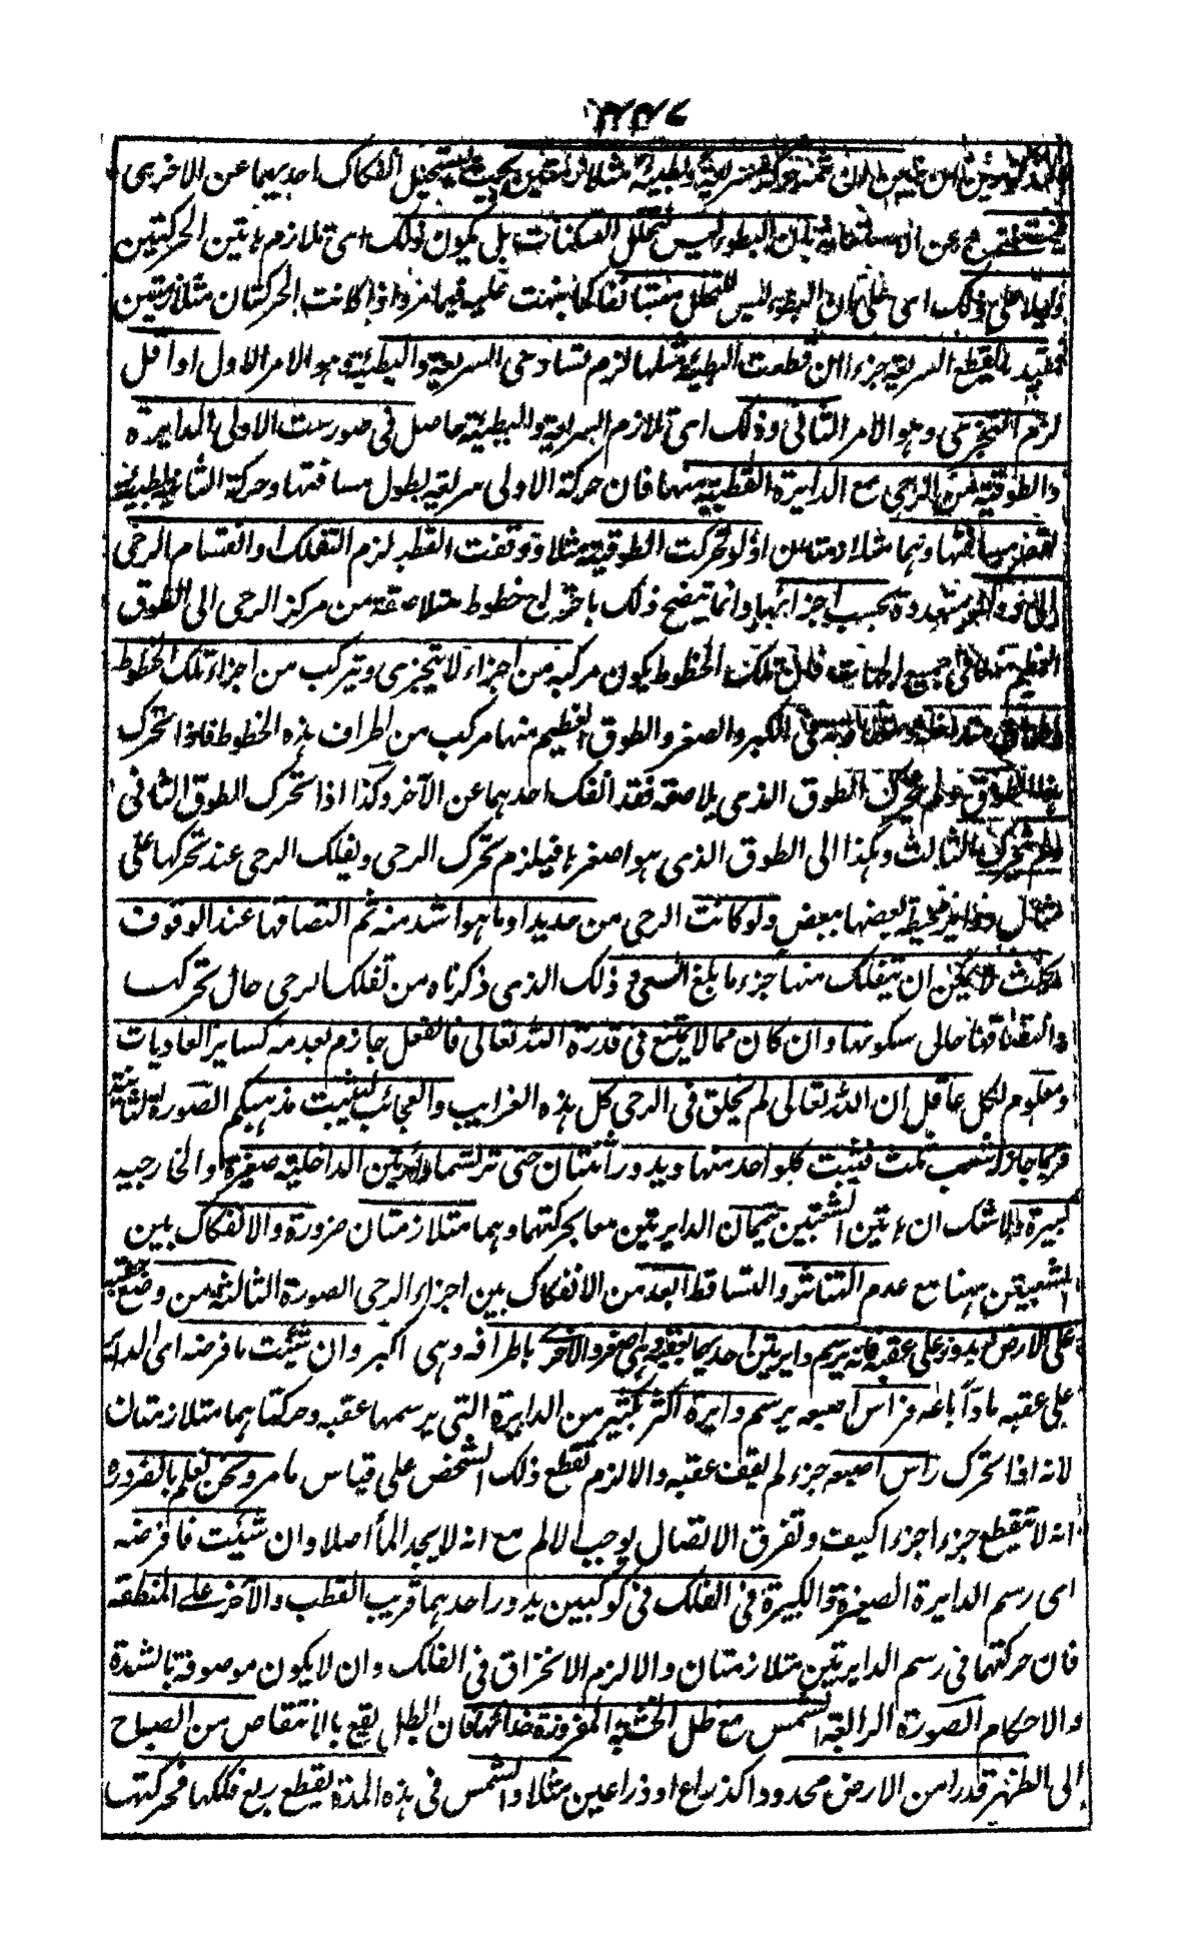 بحيث يستحيل انفكاك احديهما عن الاخرى
عن الاستعانة بان البطوء ليس لتخلل السكنات بل يكون ذلك اى تلازم هاتين الحركتين
دليلا على ذلك اى على ان البطوء ليس للتخلل كما نبهت عليه فيما مر واذا كانت الحركتان متلازمتين
السريعة جزءا ان قطعت البطيئة مثلها لزم تساوى السريعة والبطيئة وهو الامر الاول او اقل
لزم التجزى وهو الامر الثانى وذلك اى تلازم السريعة والبطيئة حاصل فى صور ست الاولى الدايرة
والطوقية من الرحى مع الدايرة القطبية منها فان حركة الاولى سريعة لطول مسافتها وحركة الثانية بطيئة
لقصر مسافتها وهما متلازمتان اذ لو تحركت الطوقية مثلا ووقفت القطبية لزم التفكك وانقسام الرحى
الى دواير متعددة بحسب اجزائها وانما يتضح ذلك باخراج خطوط متلاصقة من مركز الرحى الى الطوق
العظيم منها فى جميع الجهات فان تلك الخطوط يكون مركبة من اجزاء لا يتجزى ويتركب من اجزاء تلك الخطوط
الكبر والصغر والطوق العظيم منها مركب من اطراف هذه الخطوط فاذا تحرك
هذا الطوق ولم يتحرك الطوق الذى يلاصقه فقد انفك احدهما عن الآخر وكذا اذا تحرك الطوق الثانى
ولم يتحرك الثالث وهكذا الى الطوق الذى هو اصغرها فيلزم تحرك الرحى وتفكك الرحى عند تحركها على
مثال دواير محيطة بعضها ببعض ولو كانت الرحى من حديد او ما هو اشد منه ثم التصاقها عند الوقوف
بحيث لا يمكن ان يتفكك منها جزء ما بلغ السعى فى ذلك الذى ذكرناه من تفكك الرحى حال تحركه
والتصاقها حالى سكونها وان كان مما لا يمتنع فى قدرة الله تعالى فالعقل جازم بعدمه كساير العاديات
ومعلوم لكل عاقل ان الله تعالى لم يخلق فى الرحى كل هذه الغرايب والعجائب ليثبت مذهبكم الصورة الثانية
فرجار ذو شعب ثلث فيثبت كلواحد منها ويدور اثنتان حتى ترتسما دائرتين الداخلية صغيرة والخارجيه
كبيرة ولا شك ان هاتين الشعبتين تتمان الدايرتين معا بحركتهما وهما متلازمتان ضرورة والانفكاك بين
الشعبتين ههنا مع عدم التناثر والتساقط ابعد من الانفكاك بين اجزاء الرحى الصورة الثالثة من وضع عقبه
على الارض يدور على عقبه فانه يرسم دايرتين احديهما بعقبه وهى اصغر والاخرى باطرافه وهى اكبر وان شئت ما فرضه اى الداير
على عقبه مادا باعه فراس اصبعه يرسم دايرة اكثر بكثير من الدايرة التى يرسمها عقبه وحركتاهما متلازمتان
لانه اذا تحرك راس اصبعه جزء لم يقف عقبه والا لزم تقطع ذلك الشخص على قياس ما مر ونحن نعلم بالضرورة
انه لا يتقطع جزءا جزءا كيف وتفرق الاتصال يوجب الالم مع انه لا يجد الما اصلا وان شئت فافرضه
اى رسم الدايرة الصغيرة والكبيرة فى الفلك فى كوكبين يدور احدهما قريب القطب والآخر على المنطقة
فان حركتهما فى رسم الدايرتين متلازمتان والا لزم الانخراق فى الفلك وان لا يكون موصوفة بالشدة
والاحكام الصورة الرابعة الشمس مع ظل الخشبة المغروزة حذائها فان الظل يقع بالانتقاص من الصباح
الى الظهر قدرا من الارض محدودا كذراع او ذراعين مثلا والشمس فى هذه المدة يقطع ربع فلكها فحركتها